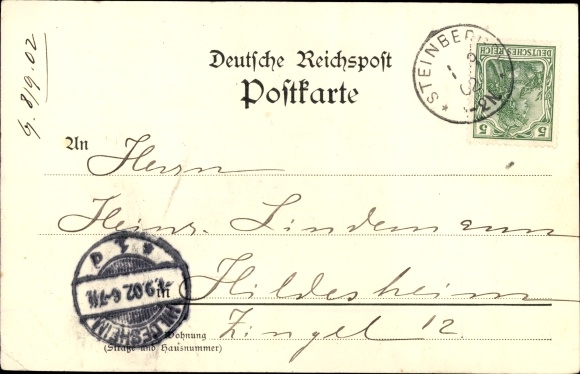 G. 8/9.02
Deutsche Reichspost
Postkarte
STEINBERG
9
02
DEUTSCHES REICH
5 5
An Herrn
Heinr. Lindemann
in Hildesheim
Wohnung Zingel 12.
(Straße und Hausnummer)
HILDESHEIM
9.02. 6-7N.